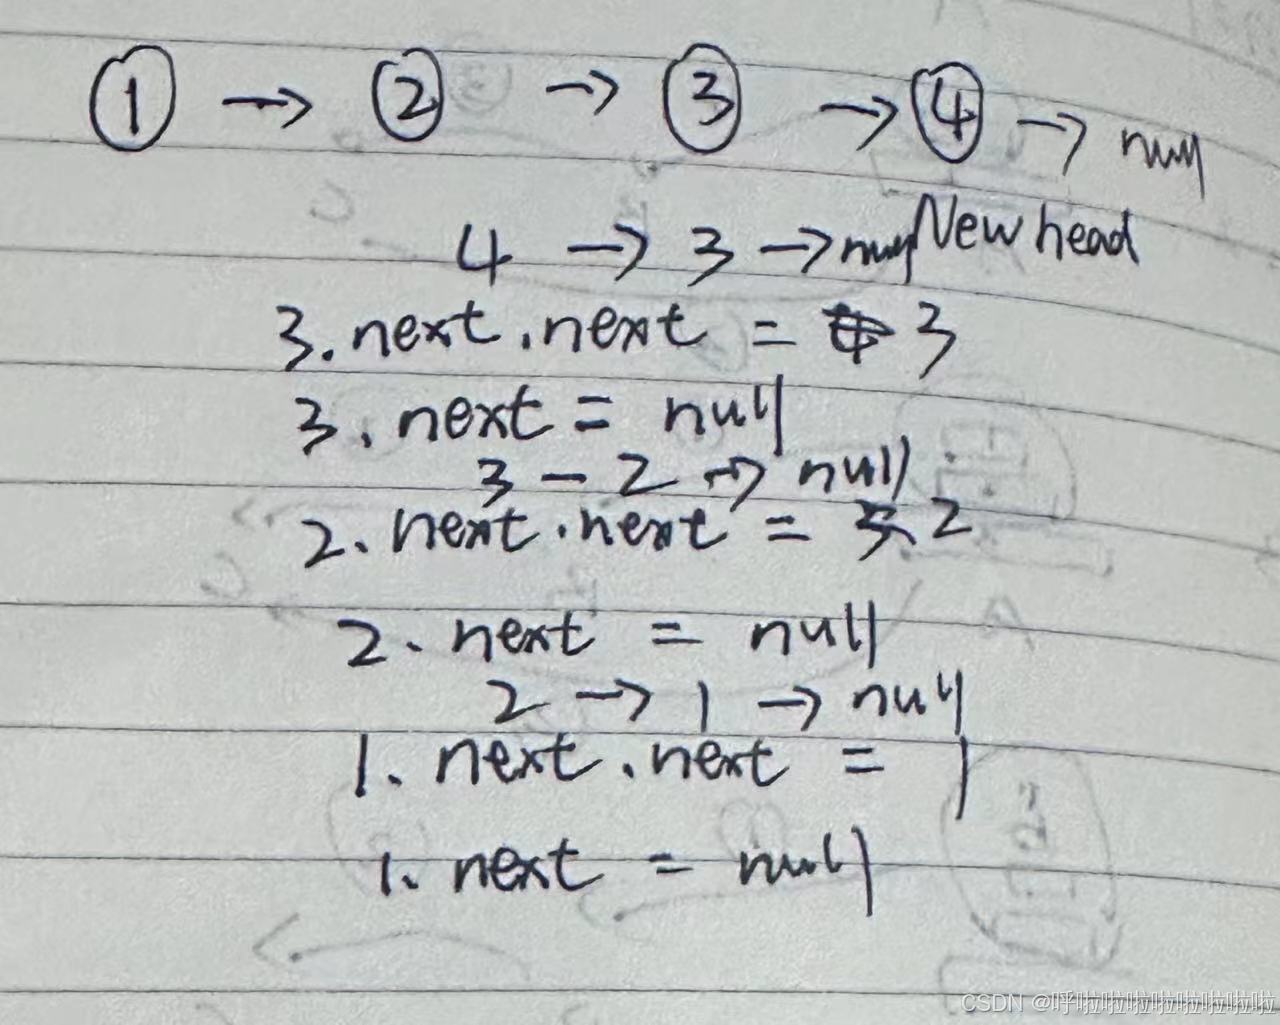 ① → ② → ③ → ④ → null
4 → 3 → null New head
3.next.next = 3
3.next = null
3 - 2 → null
2.next.next = 2
2.next = null
2 → 1 → null
1.next.next = 1
1.next = null
CSDN @呼啦啦啦啦啦啦啦啦